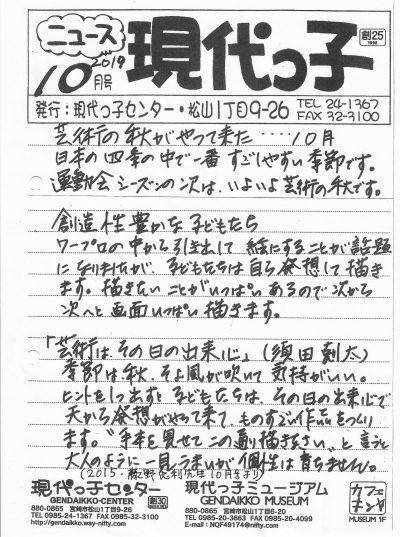 ニュース
2019
10月号
現代っ子
創25
1998
発行：現代っ子センター・松山1丁目9-26
TEL 24-1367
FAX 32-3100
芸術の秋がやって来た‥‥10月
日本の四季の中で一番すごしやすい季節です。
運動会シーズンの次は、いよいよ芸術の秋です。
創造性豊かな子どもたち
ワープロの中から引き出して 絵にすることが話題
になりましたが、子どもたちは自ら発想して描き
ます。描きたいことがいっぱいあるので次から
次へと画面いっぱい描きます。
「芸術は、その日の出来心」（須田剋太）
季節は、秋、そよ風が吹いて気持がいい。
ヒントを1つ出すと子どもたちは、その日の出来心で
天から発想がやって来て、ものすごい作品をつくり
ます。"手本を見せてこの通り描きなさい"と言うと
大人のように一見うまいが個性は育ちません。
(2015・藤野忠利先生10月号より)
現代っ子センター
GENDAIKKO-CENTER
創30
880-0865 宮崎市松山1丁目9-26
TEL 0985-24-1367 FAX 0985-32-3100
http://gendaikko.way-nifty.com
現代っ子ミュージアム
GENDAIKKO MUSEUM
880-0865 宮崎市松山1丁目6-20
TEL 0985-20-3663 FAX 0985-20-4099
E-mail : NQF49174@nifty.com
カフェ
MUSEUM 1F